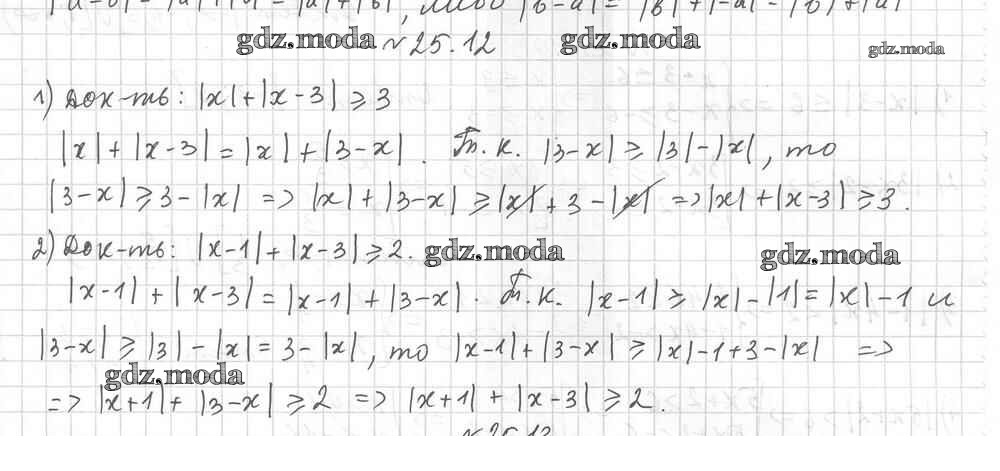 gdz.moda № 25.12 gdz.moda gdz.moda
1) Док-ть: |x|+|x-3| ≥ 3
|x|+|x-3| = |x|+|3-x|. Т.к. |3-x| ≥ |3|-|x|, то
|3-x| ≥ 3-|x| => |x|+|3-x| ≥ |x|+3-|x| => |x|+|x-3| ≥ 3.
2) Док-ть: |x-1|+|x-3| ≥ 2. gdz.moda gdz.moda
|x-1|+|x-3| = |x-1|+|3-x|. Т.к. |x-1| ≥ |x|-|1| = |x|-1 и
|3-x| ≥ |3|-|x| = 3-|x|, то |x-1|+|3-x| ≥ |x|-1+3-|x| =>
gdz.moda
=> |x+1|+|3-x| ≥ 2 => |x+1|+|x-3| ≥ 2.